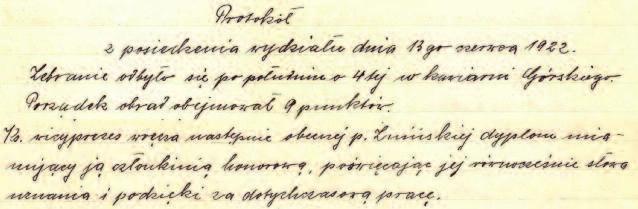 Protokół
z posiedzenia wydziału dnia 13go czerwca 1922.
Zebranie odbyło się po południu o 4tej w kawiarni Górskiego.
Porządek obrad obejmował 9 punktów.
Ks. wiceprezes wręcza następnie obecnej p. Żmińskiej dyplom mia-
nujący ją członkinią honorową, poświęcając jej równocześnie słowa
uznania i podzięki za dotychczasową pracę.